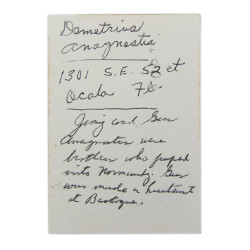 Demetrius
Anagnostis
1301 S.E. 52 ct
Ocala Fl.
Jimy and Gus
Anagnostis were
brothers who jumped
into Normandy. Gus
was made a lieutenant
at Bastogne.